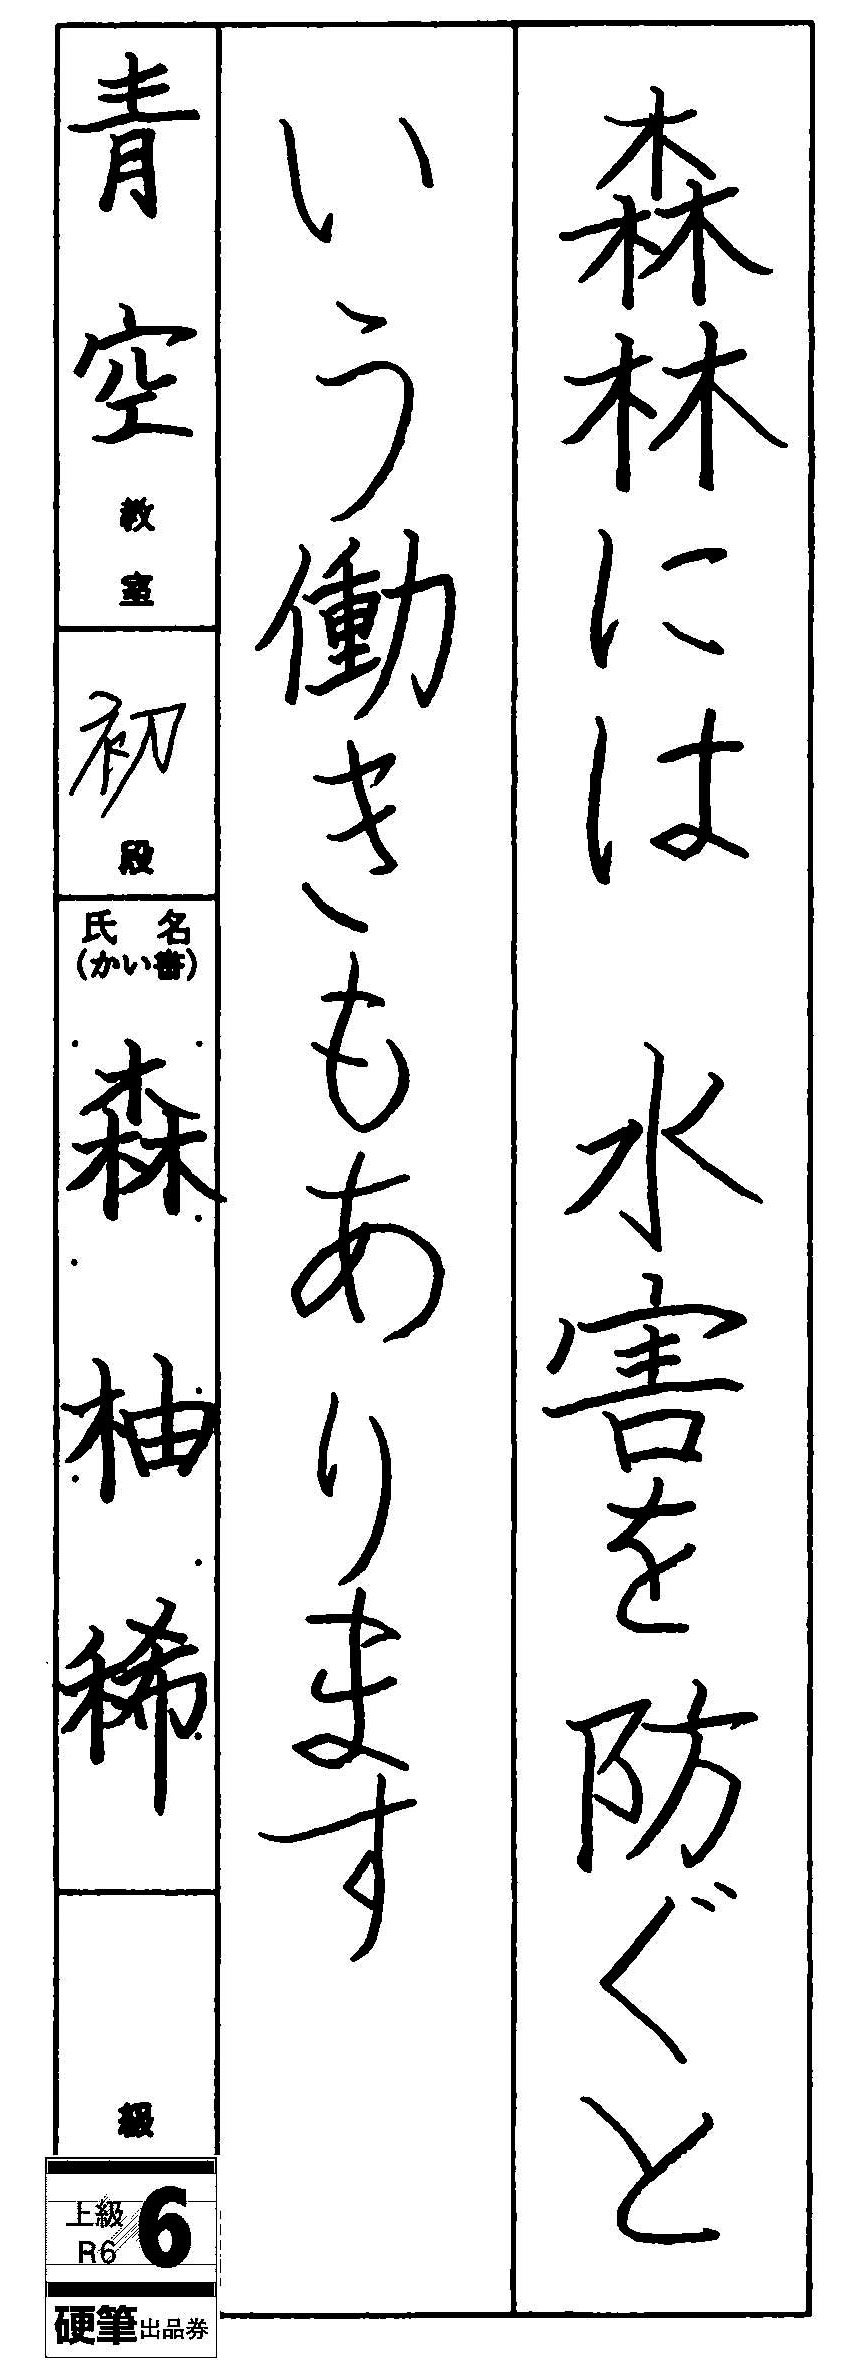 森林には 水害を防ぐと
いう働きもあります
青空教室
初段
氏名
(かい書)
森 柚稀
級
上級
R6
6
硬筆出品券